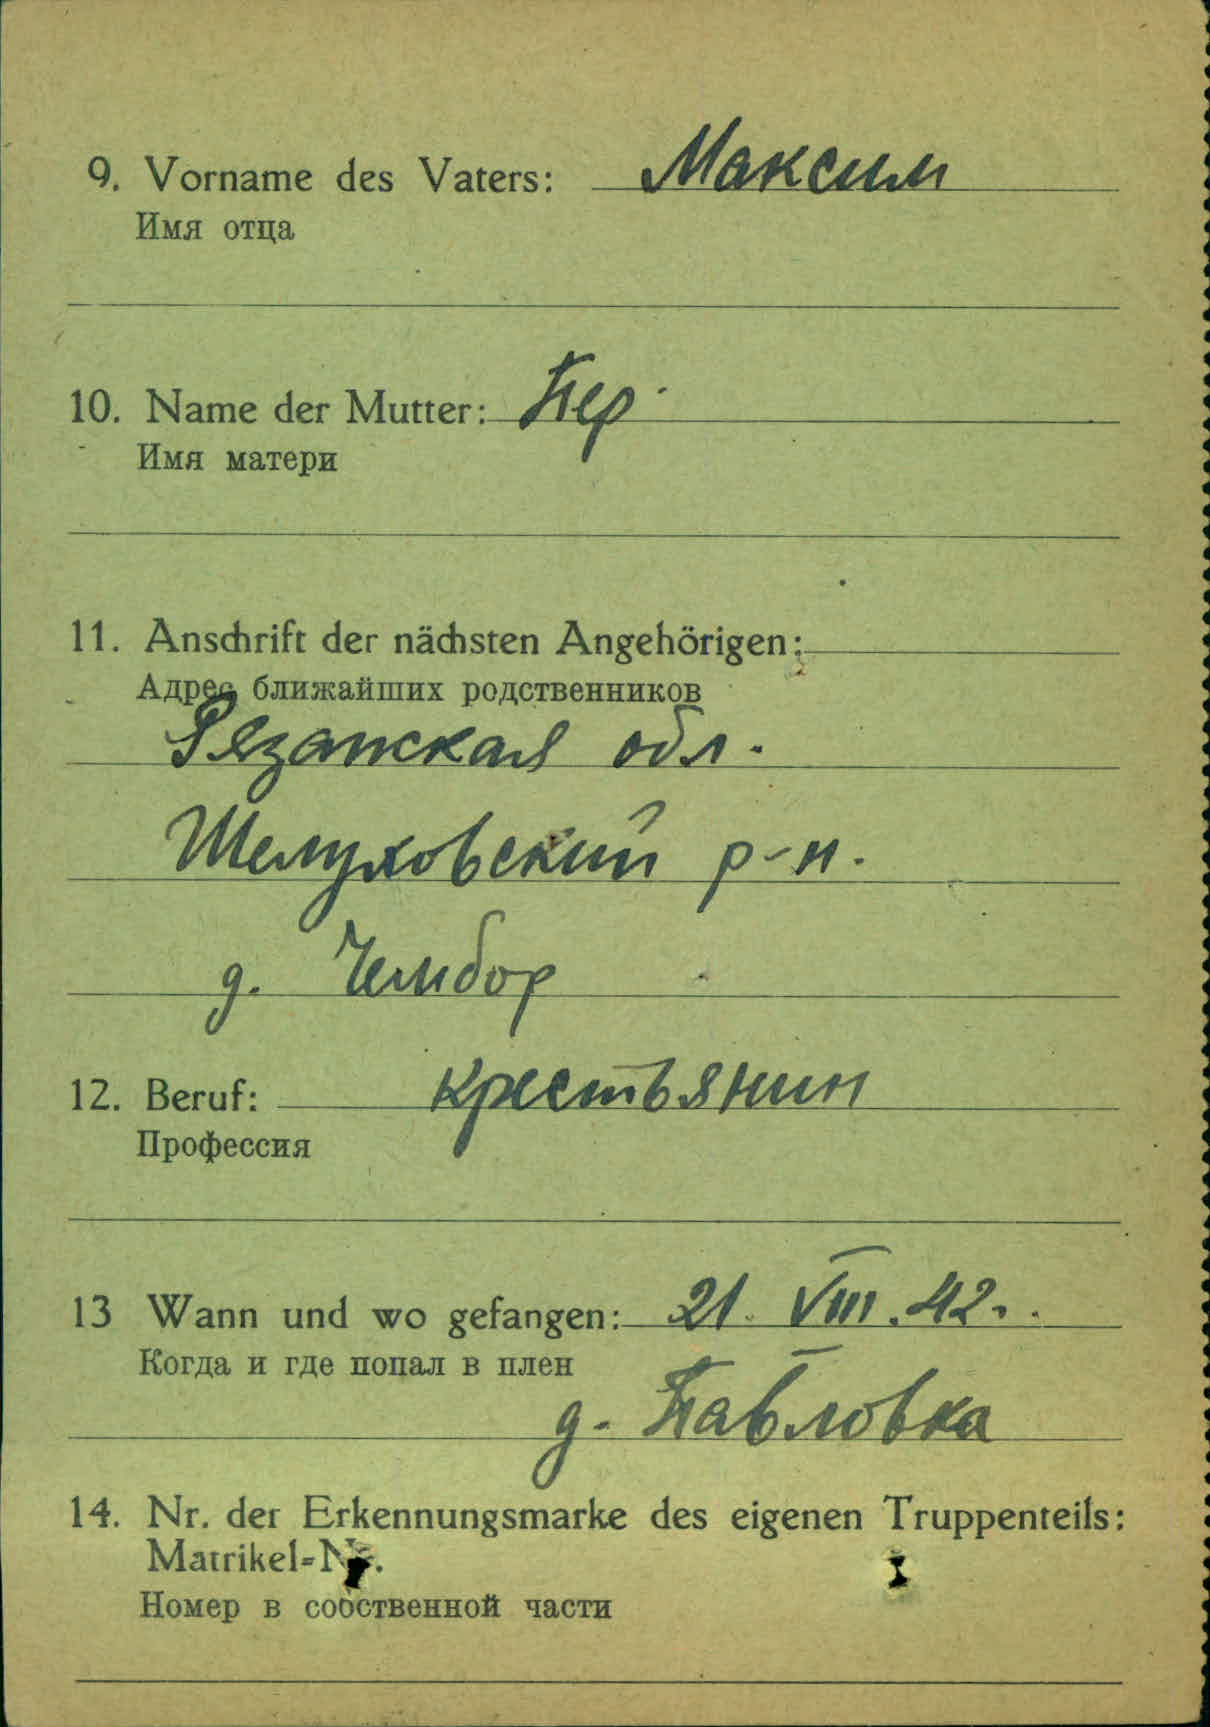 9. Vorname des Vaters: Максим
Имя отца
10. Name der Mutter: Пер
Имя матери
11. Anschrift der nächsten Angehörigen:
Адрес ближайших родственников
Рязанская обл.
Шелуховский р-н.
д. Чембор
12. Beruf: крестьянин
Профессия
13 Wann und wo gefangen: 21. VIII. 42.
Когда и где попал в плен
д. Павловка
14. Nr. der Erkennungsmarke des eigenen Truppenteils:
Matrikel-Nr.
Номер в собственной части